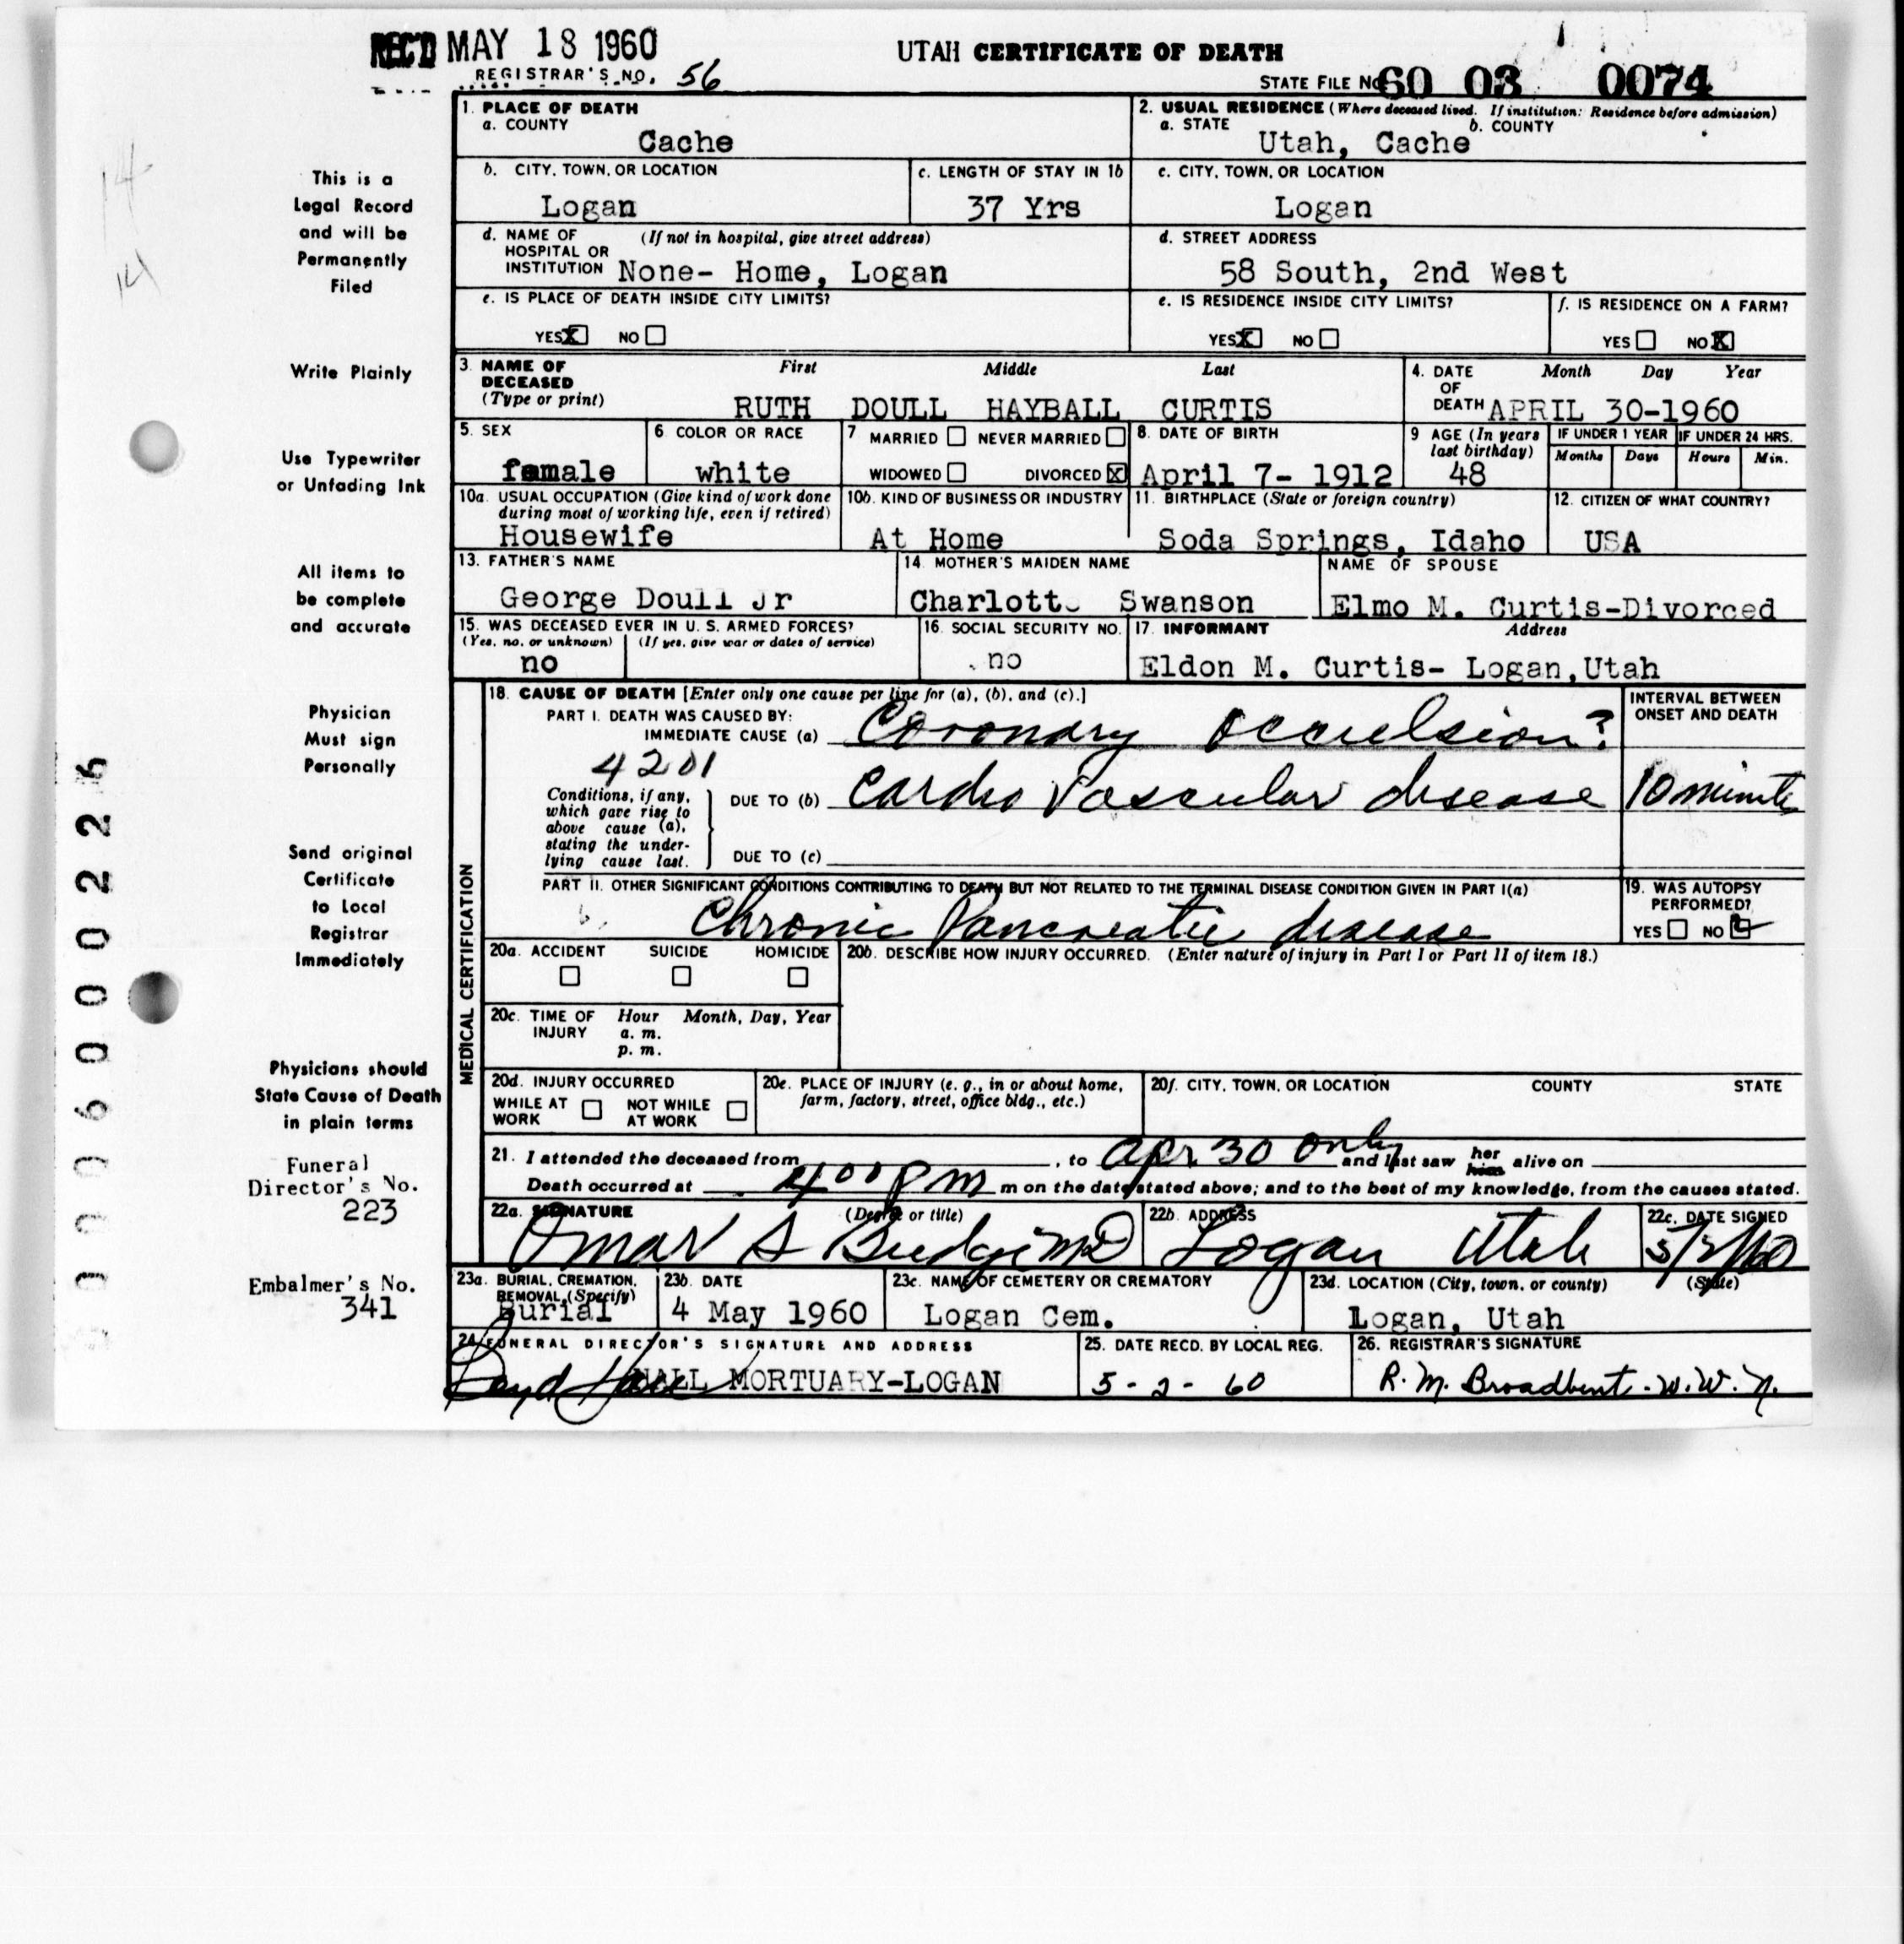 REC'D MAY 18 1960
UTAH CERTIFICATE OF DEATH
REGISTRAR'S NO. 56
STATE FILE NO. 60 03 0074
1. PLACE OF DEATH
a. COUNTY
Cache
2. USUAL RESIDENCE (Where deceased lived. If institution: Residence before admission)
a. STATE b. COUNTY
Utah, Cache
b. CITY, TOWN, OR LOCATION
Logan
c. LENGTH OF STAY IN 1b
37 Yrs
c. CITY, TOWN, OR LOCATION
Logan
d. NAME OF HOSPITAL OR INSTITUTION (If not in hospital, give street address)
None- Home, Logan
d. STREET ADDRESS
58 South, 2nd West
e. IS PLACE OF DEATH INSIDE CITY LIMITS?
YES X NO
e. IS RESIDENCE INSIDE CITY LIMITS?
YES X NO
f. IS RESIDENCE ON A FARM?
YES NO X
3. NAME OF DECEASED (Type or print) First Middle Last
RUTH DOULL HAYBALL CURTIS
4. DATE OF DEATH Month Day Year
APRIL 30-1960
5. SEX
female
6. COLOR OR RACE
white
7 MARRIED NEVER MARRIED
WIDOWED DIVORCED X
8. DATE OF BIRTH
April 7- 1912
9 AGE (In years last birthday)
48
IF UNDER 1 YEAR
Months Days
IF UNDER 24 HRS.
Hours Min.
10a. USUAL OCCUPATION (Give kind of work done during most of working life, even if retired)
Housewife
10b. KIND OF BUSINESS OR INDUSTRY
At Home
11. BIRTHPLACE (State or foreign country)
Soda Springs, Idaho
12. CITIZEN OF WHAT COUNTRY?
USA
13. FATHER'S NAME
George Doull Jr
14. MOTHER'S MAIDEN NAME
Charlotte Swanson
NAME OF SPOUSE
Elmo M. Curtis-Divorced
15. WAS DECEASED EVER IN U. S. ARMED FORCES?
(Yes, no, or unknown) (If yes, give war or dates of service)
no
16. SOCIAL SECURITY NO.
no
17. INFORMANT Address
Eldon M. Curtis- Logan,Utah
MEDICAL CERTIFICATION
18. CAUSE OF DEATH [Enter only one cause per line for (a), (b), and (c).]
PART I. DEATH WAS CAUSED BY:
IMMEDIATE CAUSE (a) Coronary Occulsion?
INTERVAL BETWEEN ONSET AND DEATH
4201
Conditions, if any, which gave rise to above cause (a), stating the underlying cause last.
DUE TO (b) Cardio Vascular disease
10 minute
DUE TO (c)
PART II. OTHER SIGNIFICANT CONDITIONS CONTRIBUTING TO DEATH BUT NOT RELATED TO THE TERMINAL DISEASE CONDITION GIVEN IN PART I(a)
Chronic Pancreatic disease
19. WAS AUTOPSY PERFORMED?
YES NO
20a. ACCIDENT SUICIDE HOMICIDE
20b. DESCRIBE HOW INJURY OCCURRED. (Enter nature of injury in Part I or Part II of item 18.)
20c. TIME OF INJURY Hour Month, Day, Year
a. m.
p. m.
20d. INJURY OCCURRED
WHILE AT WORK NOT WHILE AT WORK
20e. PLACE OF INJURY (e. g., in or about home, farm, factory, street, office bldg., etc.)
20f. CITY, TOWN, OR LOCATION COUNTY STATE
21. I attended the deceased from , to Apr 30 only and last saw her him alive on
Death occurred at 400 pm m on the date stated above; and to the best of my knowledge, from the causes stated.
22a. SIGNATURE (Degree or title)
Omar S Budge MD
22b. ADDRESS
Logan Utah
22c. DATE SIGNED
5/2/60
23a. BURIAL, CREMATION, REMOVAL (Specify)
Burial
23b. DATE
4 May 1960
23c. NAME OF CEMETERY OR CREMATORY
Logan Cem.
23d. LOCATION (City, town, or county) (State)
Logan, Utah
24. FUNERAL DIRECTOR'S SIGNATURE AND ADDRESS
HALL MORTUARY-LOGAN
25. DATE RECD. BY LOCAL REG.
5-2-60
26. REGISTRAR'S SIGNATURE
R. M. Broadbent. W. W. N.
This is a
Legal Record
and will be
Permanently
Filed
Write Plainly
Use Typewriter
or Unfading Ink
All items to
be complete
and accurate
Physician
Must sign
Personally
Send original
Certificate
to Local
Registrar
Immediately
Physicians should
State Cause of Death
in plain terms
Funeral
Director's No.
223
Embalmer's No.
341
14
14